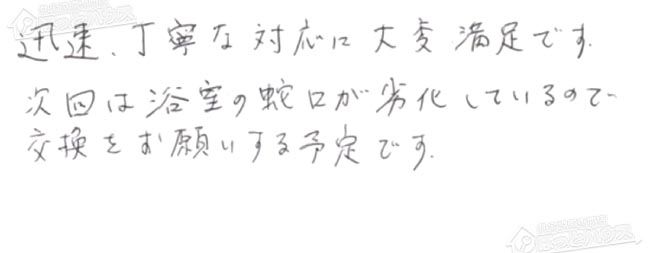 迅速、丁寧な対応に大変満足です.
次回は浴室の蛇口が劣化しているので
交換をお願いする予定です.